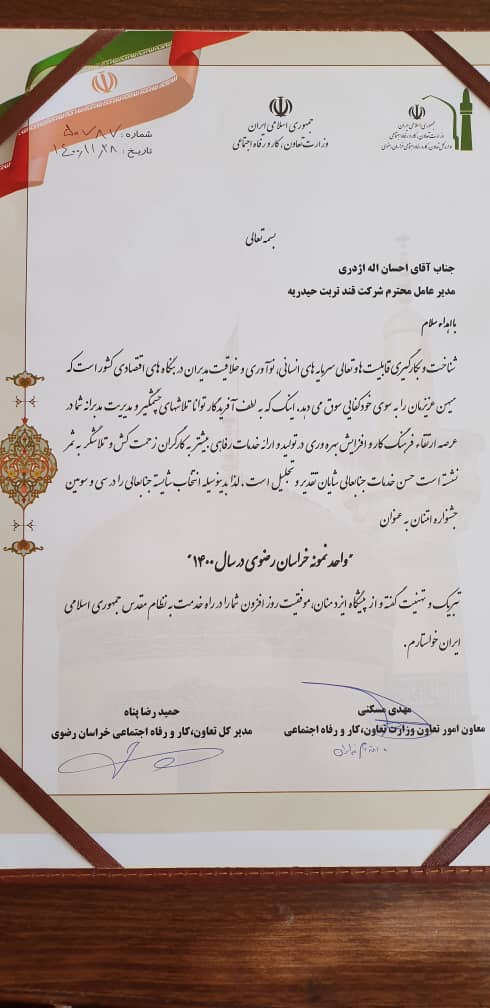 جمهوری اسلامی ایران
وزارت تعاون، کار و رفاه اجتماعی
اداره کل تعاون، کار و رفاه اجتماعی خراسان رضوی
جمهوری اسلامی ایران
وزارت تعاون، کار و رفاه اجتماعی
شماره: ۵۰۷۸۷
تاریخ: ۱۴۰۰,۱۱,۲۸
بسمه تعالی
جناب آقای احسان اله اژدری
مدیر عامل محترم شرکت قند تربت حیدریه
با اهداء سلام
شناخت و بکارگیری قابلیت ها و تعالی سرمایه های انسانی، نوآوری و خلاقیت مدیران در بنگاه های اقتصادی کشور است که
میهن عزیزمان را به سوی خودکفایی سوق می دهد. اینک که به لطف آفریدگار توانا تلاشهای چشمگیر و مدیریت مدبرانه شما در
عرصه ارتقاء فرهنگ کار و افزایش بهره وری در تولید و ارائه خدمات رفاهی بیشتر به کارگران زحمت کش و تلاشگر به ثمر
نشسته است حسن خدمات جنابعالی شایان تقدیر و تجلیل است. لذا بدینوسیله انتخاب شایسته جنابعالی را در سی و سومین
جشنواره امتنان به عنوان
"واحد نمونه خراسان رضوی در سال ۱۴۰۰"
تبریک و تهنیت گفته و از پیشگاه ایزد منان، موفقیت روز افزون شما را در راه خدمت به نظام مقدس جمهوری اسلامی
ایران خواستارم.
مهدی مسکنی
معاون امور تعاون وزارت تعاون، کار و رفاه اجتماعی
حمید رضا پناه
مدیر کل تعاون، کار و رفاه اجتماعی خراسان رضوی